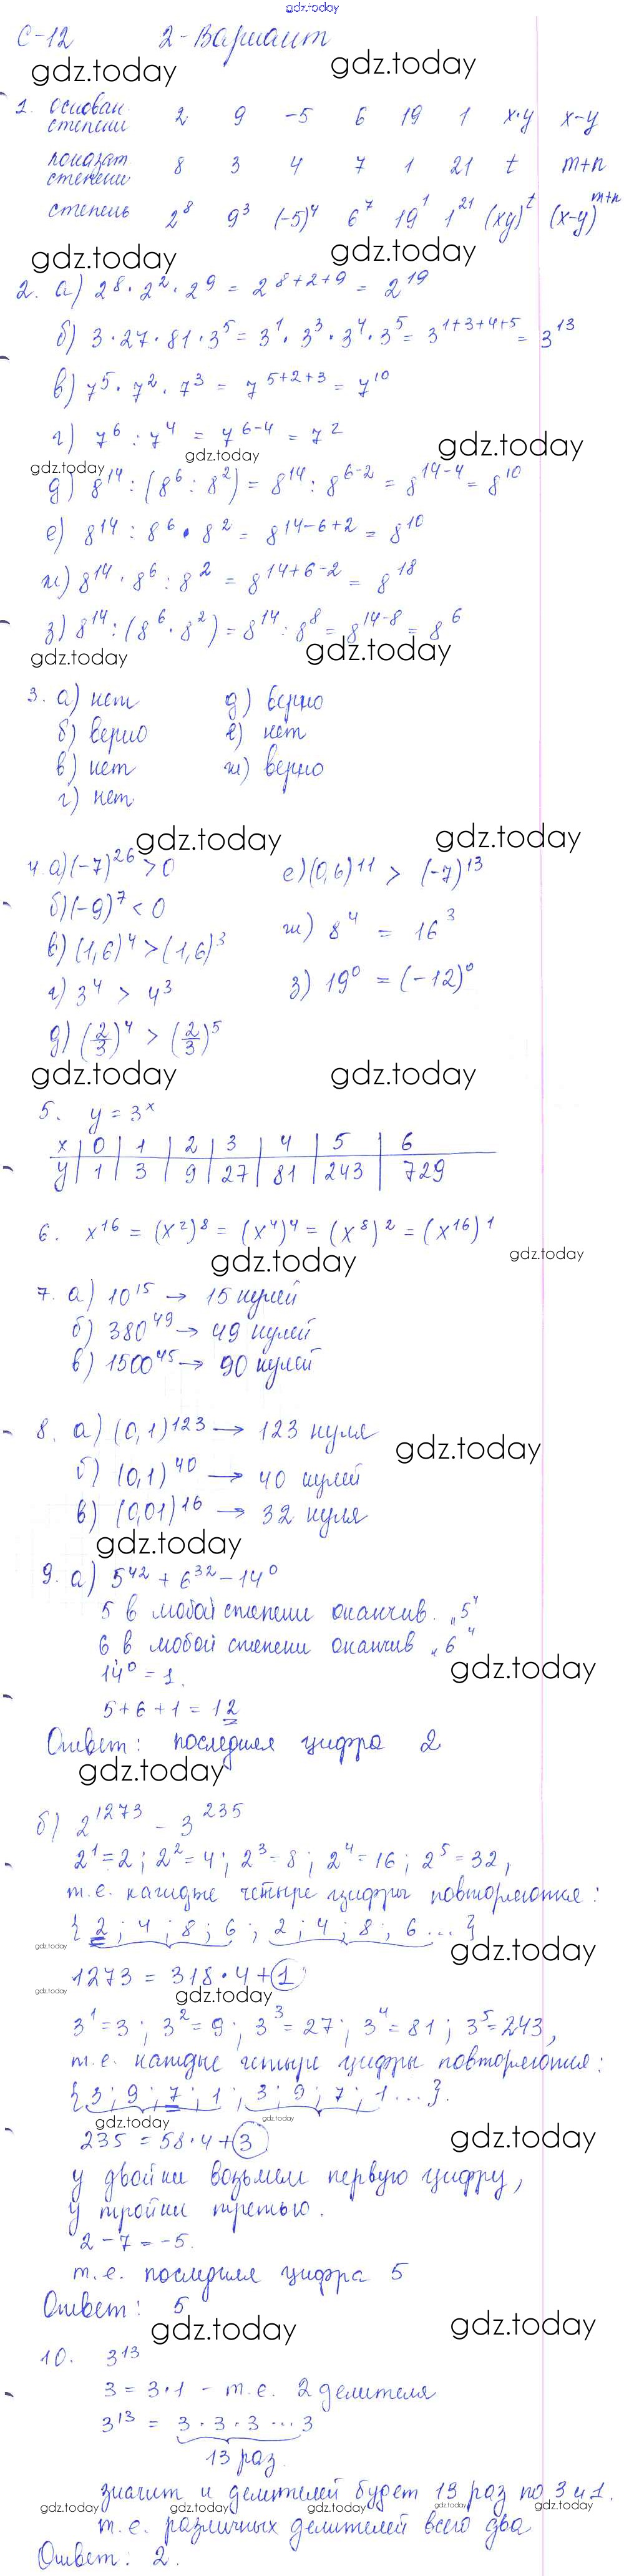 gdz.today
С-12 2-Вариант
gdz.today gdz.today
1. основан. степени 2 9 -5 6 19 1 x·y x-y
показат степени 8 3 4 7 1 21 t m+n
степень 2^8 9^3 (-5)^4 6^7 19^1 1^21 (xy)^t (x-y)^m+n
gdz.today gdz.today
2. а) 2^8 · 2^2 · 2^9 = 2^8+2+9 = 2^19
б) 3·27·81·3^5 = 3^1 · 3^3 · 3^4 · 3^5 = 3^1+3+4+5 = 3^13
в) 7^5 · 7^2 · 7^3 = 7^5+2+3 = 7^10
г) 7^6 : 7^4 = 7^6-4 = 7^2
gdz.today gdz.today gdz.today
д) 8^14 : (8^6 : 8^2) = 8^14 : 8^6-2 = 8^14-4 = 8^10
е) 8^14 : 8^6 · 8^2 = 8^14-6+2 = 8^10
ж) 8^14 · 8^6 : 8^2 = 8^14+6-2 = 8^18
з) 8^14 : (8^6 · 8^2) = 8^14 : 8^8 = 8^14-8 = 8^6
gdz.today gdz.today
3. а) нет д) верно
б) верно е) нет
в) нет ж) верно
г) нет
gdz.today gdz.today
4. а) (-7)^26 > 0 е) (0,6)^11 > (-7)^13
б) (-9)^7 < 0
в) (1,6)^4 > (1,6)^3 ж) 8^4 = 16^3
г) 3^4 > 4^3 з) 19^0 = (-12)^0
д) (2/3)^4 > (2/3)^5
gdz.today gdz.today
5. y = 3^x
x 0 1 2 3 4 5 6
y 1 3 9 27 81 243 729
6. x^16 = (x^2)^8 = (x^4)^4 = (x^8)^2 = (x^16)^1
gdz.today gdz.today
7. а) 10^15 → 15 нулей
б) 380^49 → 49 нулей
в) 1500^45 → 90 нулей
8. а) (0,1)^123 → 123 нуля
gdz.today
б) (0,1)^40 → 40 нулей
в) (0,01)^16 → 32 нуля
gdz.today
9. а) 5^42 + 6^32 - 14^0
5 в любой степени оканчив. „5"
6 в любой степени оканчив „6"
14^0 = 1.
gdz.today
5+6+1 = 12
Ответ: последняя цифра 2
gdz.today
б) 2^1273 - 3^235
2^1=2; 2^2=4; 2^3=8; 2^4=16; 2^5=32,
т.е. каждые четыре цифры повторяются:
{2; 4; 8; 6; 2; 4; 8; 6...}
gdz.today gdz.today
1273 = 318·4+1
gdz.today gdz.today
3^1=3; 3^2=9; 3^3=27; 3^4=81; 3^5=243,
т.е. каждые четыре цифры повторяются:
{3; 9; 7; 1; 3; 9; 7; 1...}.
gdz.today gdz.today gdz.today
235 = 58·4+3
у двойки возьмем первую цифру,
у тройки третью.
2-7 = -5.
т.е. последняя цифра 5
Ответ: 5
gdz.today gdz.today
10. 3^13
3 = 3·1 - т.е. 2 делителя
3^13 = 3·3·3···3
13 раз.
значит и делителей будет 13 раз по 3 и 1.
gdz.today gdz.today gdz.today gdz.today gdz.today
т.е. различных делителей всего два
Ответ: 2.